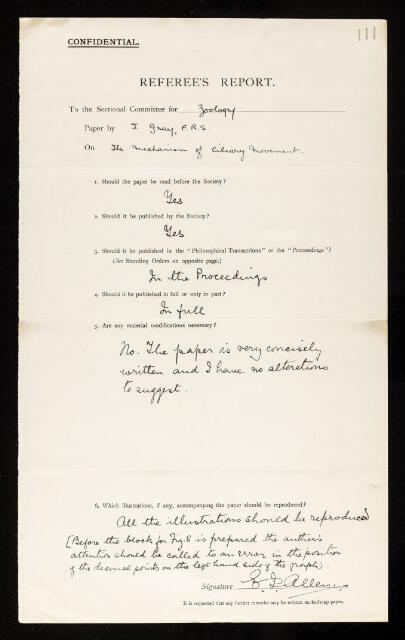 111
CONFIDENTIAL.
REFEREE'S REPORT.
To the Sectional Committee for Zoology
Paper by J. Gray, F.R.S.
On The Mechanism of Ciliary Movement.
1. Should the paper be read before the Society?
Yes
2. Should it be published by the Society?
Yes
3. Should it be published in the "Philosophical Transactions" or the "Proceedings"?
(See Standing Orders on opposite page.)
In the Proceedings
4. Should it be published in full or only in part?
In full
5. Are any material modifications necessary?
No. The paper is very concisely
written and I have no alterations
to suggest.
6. Which illustrations, if any, accompanying the paper should be reproduced?
All the illustrations should be reproduced
[Before the block for Fig 8 is prepared the author's
attention should be called to an error in the position
of the decimal points on the left hand side of the graph).
Signature E. J. Allen
It is requested that any further remarks may be written on foolscap paper.